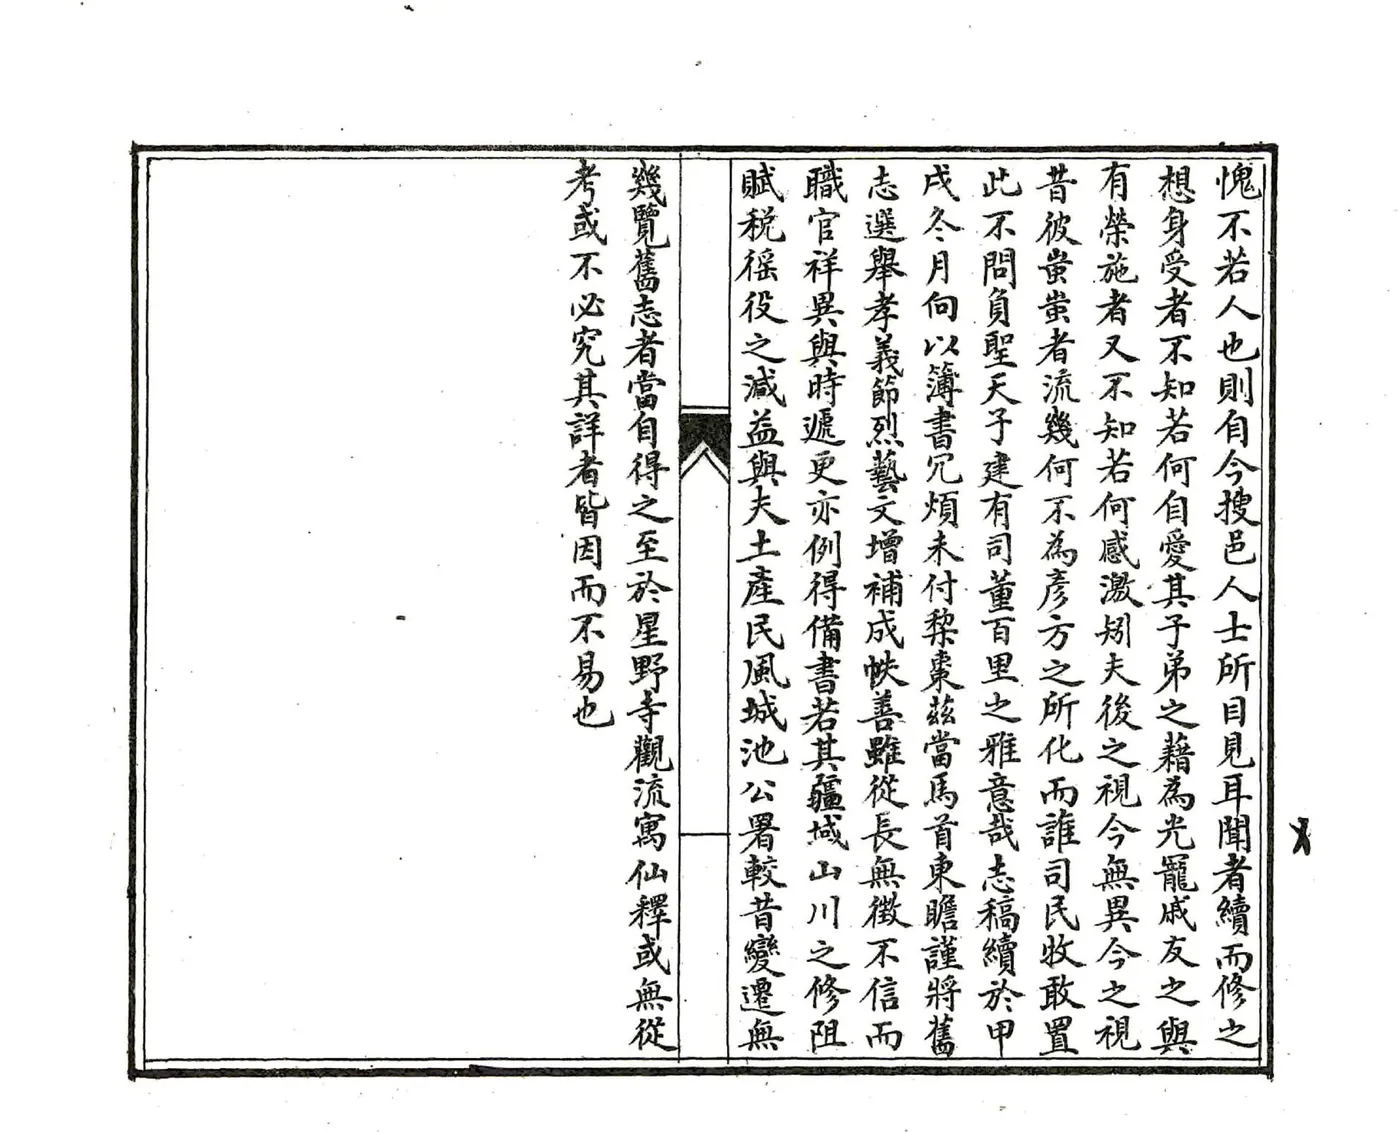 愧不若人也則自今搜邑人士所目見耳聞者續而修之
想身受者不知若何自愛其子弟之藉為光寵戚友之與
有榮施者又不知若何感激矧夫後之視今無異今之視
昔彼蚩蚩者流幾何不為彥方之所化而誰司民牧敢置
此不問負聖天子建有司董百里之雅意哉志稿續於甲
戌冬月向以簿書冗煩未付棃棗茲當馬首東瞻謹將舊
志選舉孝義節烈藝文增補成帙善雖從長無徵不信而
職官祥異與時遞更亦例得備書若其疆域山川之修阻
賦稅徭役之減益與夫土產民風城池公署較昔變遷無
幾覽舊志者當自得之至於星野寺觀流寓仙釋或無從
考或不必究其詳者皆因而不易也